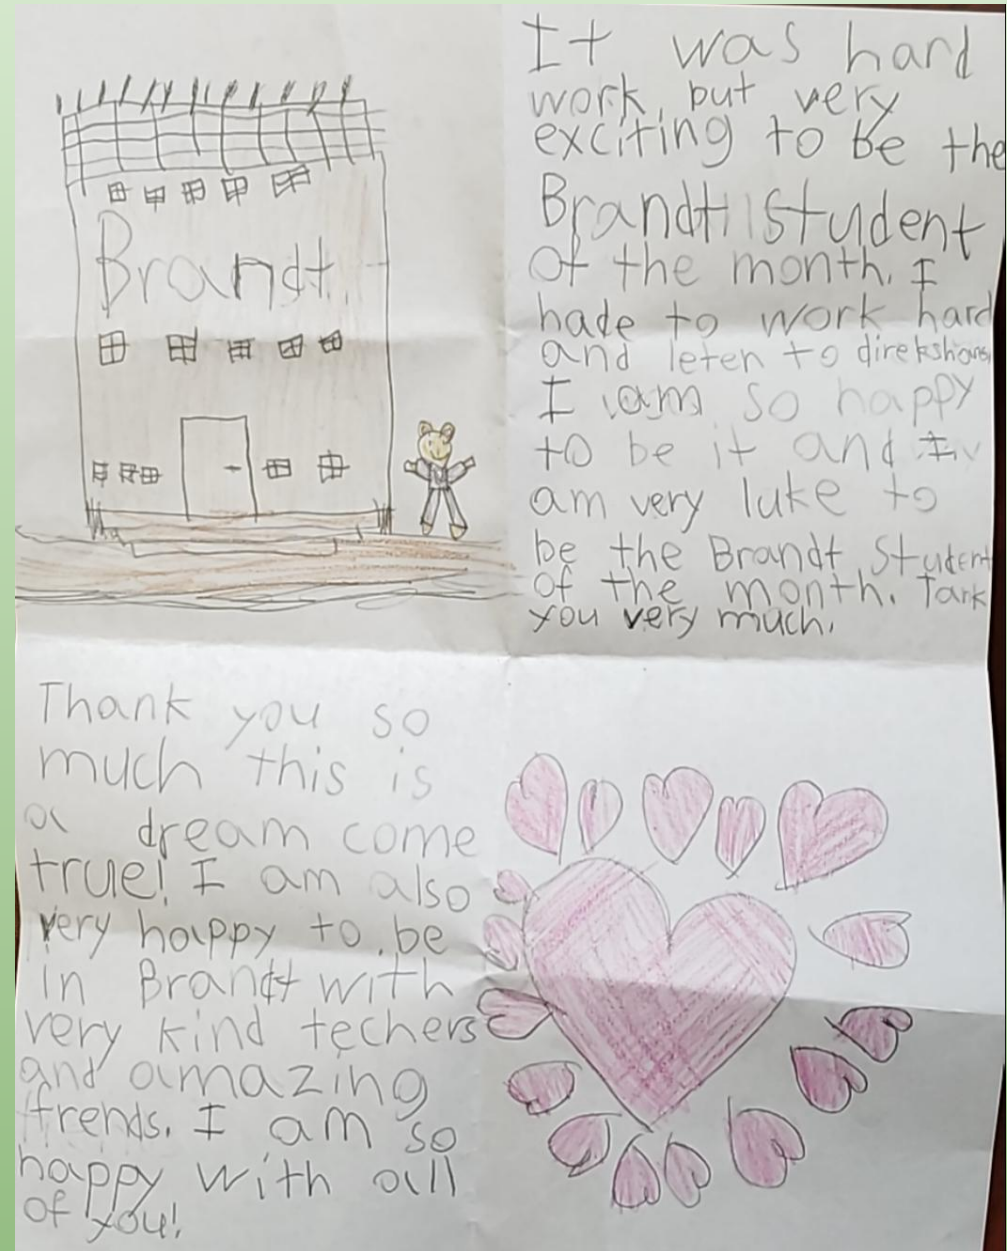 Brandt
It was hard
work, but very
exciting to be the
Brandt student
of the month. I
hade to work hard
and leten to direkshons.
I am so happy
to be it and I
am very luke to
be the Brandt Student
of the month. Tank
you very much.
Thank you so
much this is
a dream come
true! I am also
very happy to be
in Brandt with
very kind techers
and amazing
frends. I am so
happy with all
of you!